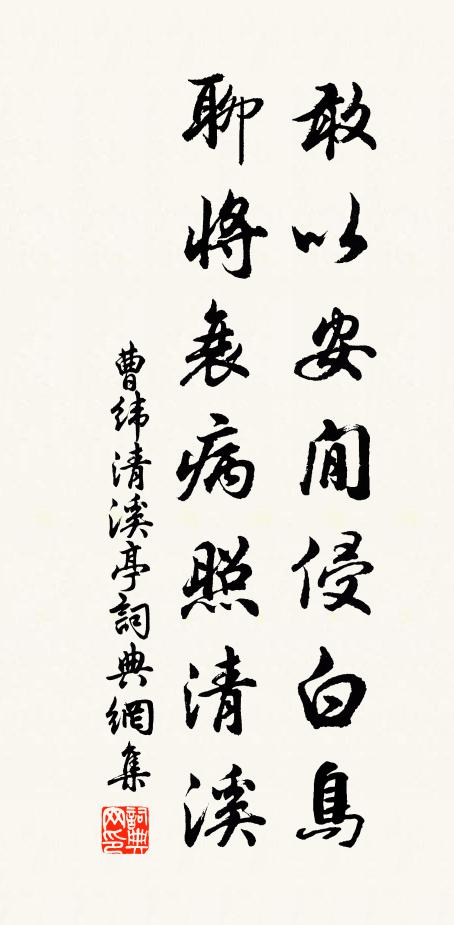 敢以安閒侵白鳥
聊將衰病照清溪
曹緯清溪亭詞典網集
詞典网印